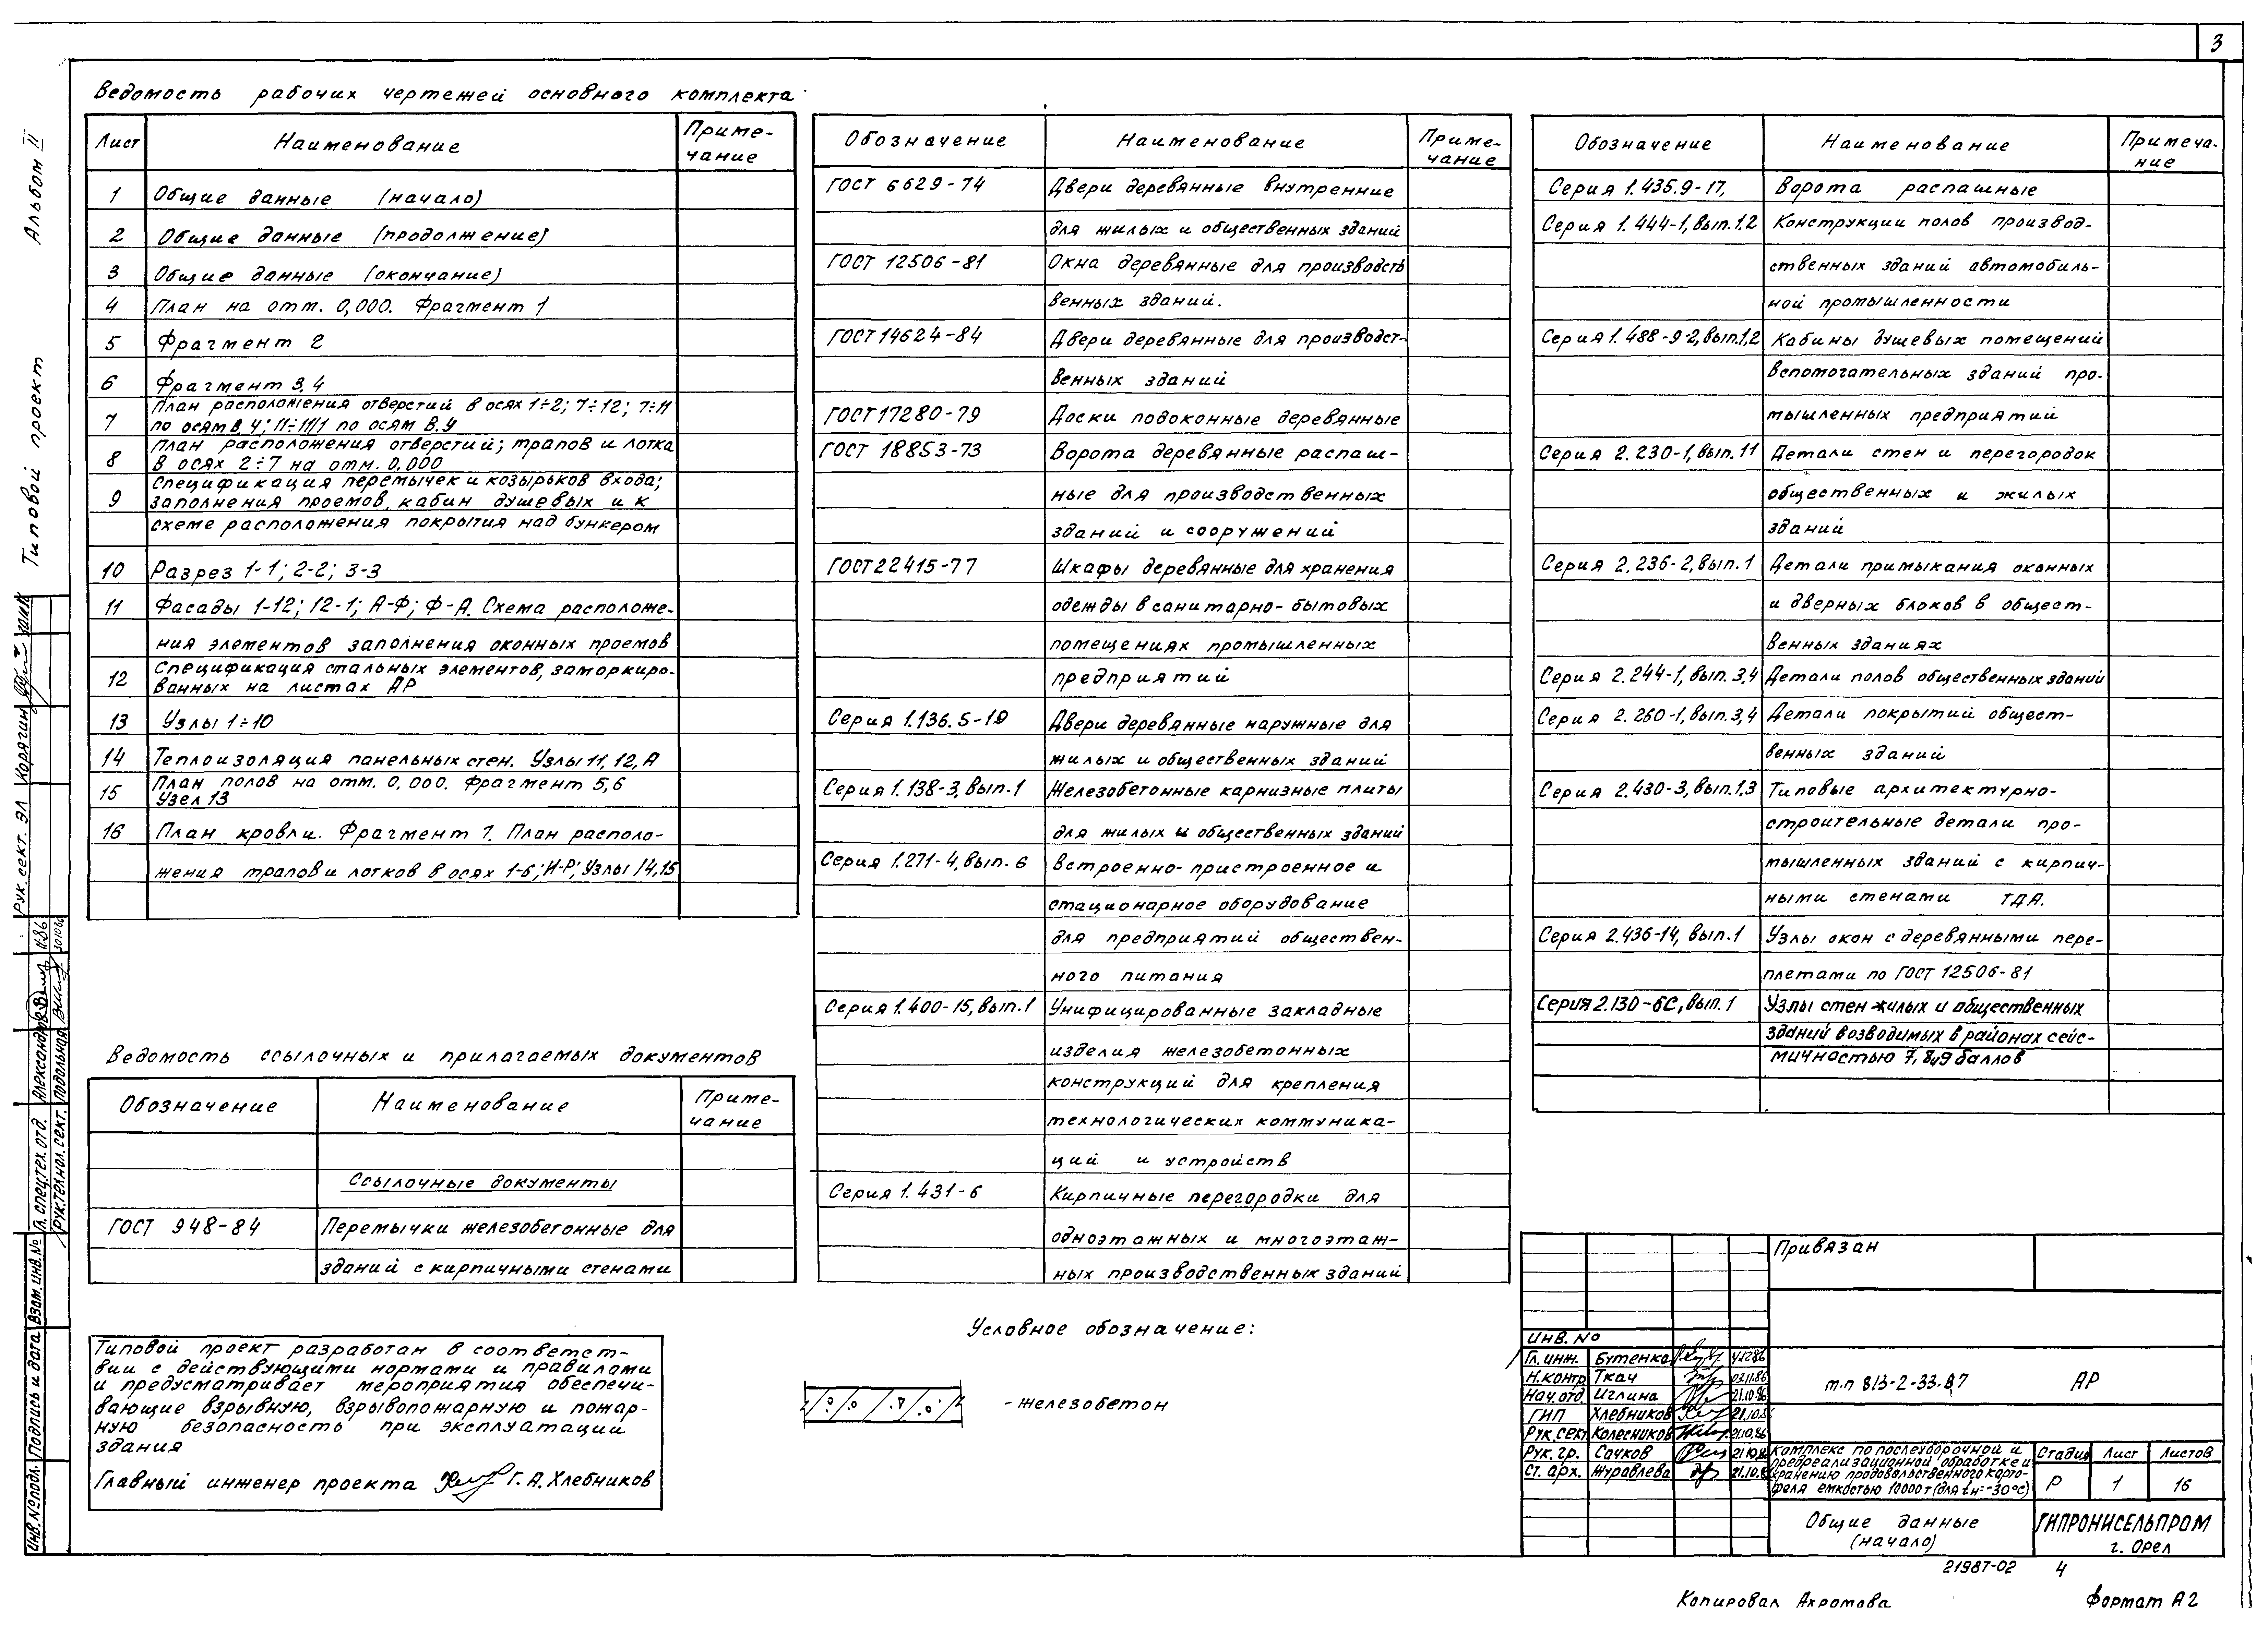 3
Альбом II
Типовой проект
Ведомость рабочих чертежей основного комплекта
Лист Наименование Приме-
чание
1 Общие данные (начало)
2 Общие данные (продолжение)
3 Общие данные (окончание)
4 План на отм. 0,000. Фрагмент 1
5 Фрагмент 2
6 Фрагмент 3,4
7 План расположения отверстий в осях 1÷2; 7÷12; 7÷11
по осям В, У; 11÷11/1 по осям В.У
8 План расположения отверстий; трапов и лотка
в осях 2÷7 на отм. 0,000
9 Спецификация перемычек и козырьков входа;
заполнения проемов, кабин душевых и к
схеме расположения покрытия над бункером
10 Разрез 1-1; 2-2; 3-3
11 Фасады 1-12; 12-1; А-Ф; Ф-А. Схема расположе-
ния элементов заполнения оконных проемов
12 Спецификация стальных элементов, замаркиро-
ванных на листах АР
13 Узлы 1÷10
14 Теплоизоляция панельных стен. Узлы 11, 12, А
15 План полов на отм. 0,000. Фрагмент 5,6
Узел 13
16 План кровли. Фрагмент 7. План располо-
жения трапов и лотков в осях 1-6; И-Р; Узлы 14,15
Ведомость ссылочных и прилагаемых документов
Обозначение Наименование Приме-
чание
Ссылочные документы
ГОСТ 948-84 Перемычки железобетонные для
зданий с кирпичными стенами
Типовой проект разработан в соответст-
вии с действующими нормами и правилами
и предусматривает мероприятия обеспечи-
вающие взрывную, взрывопожарную и пожар-
ную безопасность при эксплуатации
здания
Главный инженер проекта Г. А. Хлебников
Обозначение Наименование Приме-
чание
ГОСТ 6629-74 Двери деревянные внутренние
для жилых и общественных зданий
ГОСТ 12506-81 Окна деревянные для производств
венных зданий.
ГОСТ 14624-84 Двери деревянные для производст-
венных зданий
ГОСТ 17280-79 Доски подоконные деревянные
ГОСТ 18853-73 Ворота деревянные распаш-
ные для производственных
зданий и сооружений
ГОСТ 22415-77 Шкафы деревянные для хранения
одежды в санитарно-бытовых
помещениях промышленных
предприятий
Серия 1.136.5-19 Двери деревянные наружные для
жилых и общественных зданий
Серия 1.138-3, вып.1 Железобетонные карнизные плиты
для жилых и общественных зданий
Серия 1.271-4, вып. 6 Встроенно-пристроенное и
стационарное оборудование
для предприятий обществен-
ного питания
Серия 1.400-15, вып.1 Унифицированные закладные
изделия железобетонных
конструкций для крепления
технологических коммуника-
ций и устройств
Серия 1.431-6 Кирпичные перегородки для
одноэтажных и многоэтаж-
ных производственных зданий
Условное обозначение:
- железобетон
Обозначение Наименование Примеча-
ние
Серия 1.435.9-17, Ворота распашные
Серия 1.444-1, вып.1,2 Конструкции полов производ-
ственных зданий автомобиль-
ной промышленности
Серия 1.488-9-2, вып.1,2 Кабины душевых помещений
вспомогательных зданий про-
мышленных предприятий
Серия 2.230-1, вып. 11 Детали стен и перегородок
общественных и жилых
зданий
Серия 2.236-2, вып. 1 Детали примыкания оконных
и дверных блоков в общест-
венных зданиях
Серия 2.244-1, вып. 3,4 Детали полов общественных зданий
Серия 2.260-1, вып.3,4 Детали покрытий общест-
венных зданий
Серия 2.430-3, вып.1,3 Типовые архитектурно-
строительные детали про-
мышленных зданий с кирпич-
ными стенами ТДА.
Серия 2.436-14, вып.1 Узлы окон с деревянными пере-
плетами по ГОСТ 12506-81
Серия 2.130-6С, вып.1 Узлы стен жилых и общественных
зданий возводимых в районах сейс-
мичностью 7, 8,и9 баллов
Привязан
Инв. №
Гл. инж. Бутенко
Н.контр Ткач 03.11.86
Нач.отд Иглина 21.10.86
ГИП Хлебников 21.10.8
Рук.сект Колесников 21.10.86
Рук. гр. Сочков 21.10.8
Ст. арх. Журавлева 21.10.8
т.п 813-2-33.87 АР
Комплекс по послеуборочной и
предреализационной обработке и
хранению продовольственного карто-
феля емкостью 10000 т (для tн=-30°С)
Стадия Лист Листов
Р 1 16
Общие данные
(начало)
ГИПРОНИСЕЛЬПРОМ
г. Орел
21987-02 4
Копировал Ахромова Формат А2
Рук. сект. ЭЛ Корягин
Гл. спец.тех. отд. Александров 11.86
Рук.технол.сект. Подольная
Взам. инв.№
Подпись и дата
Инв.№ подл.